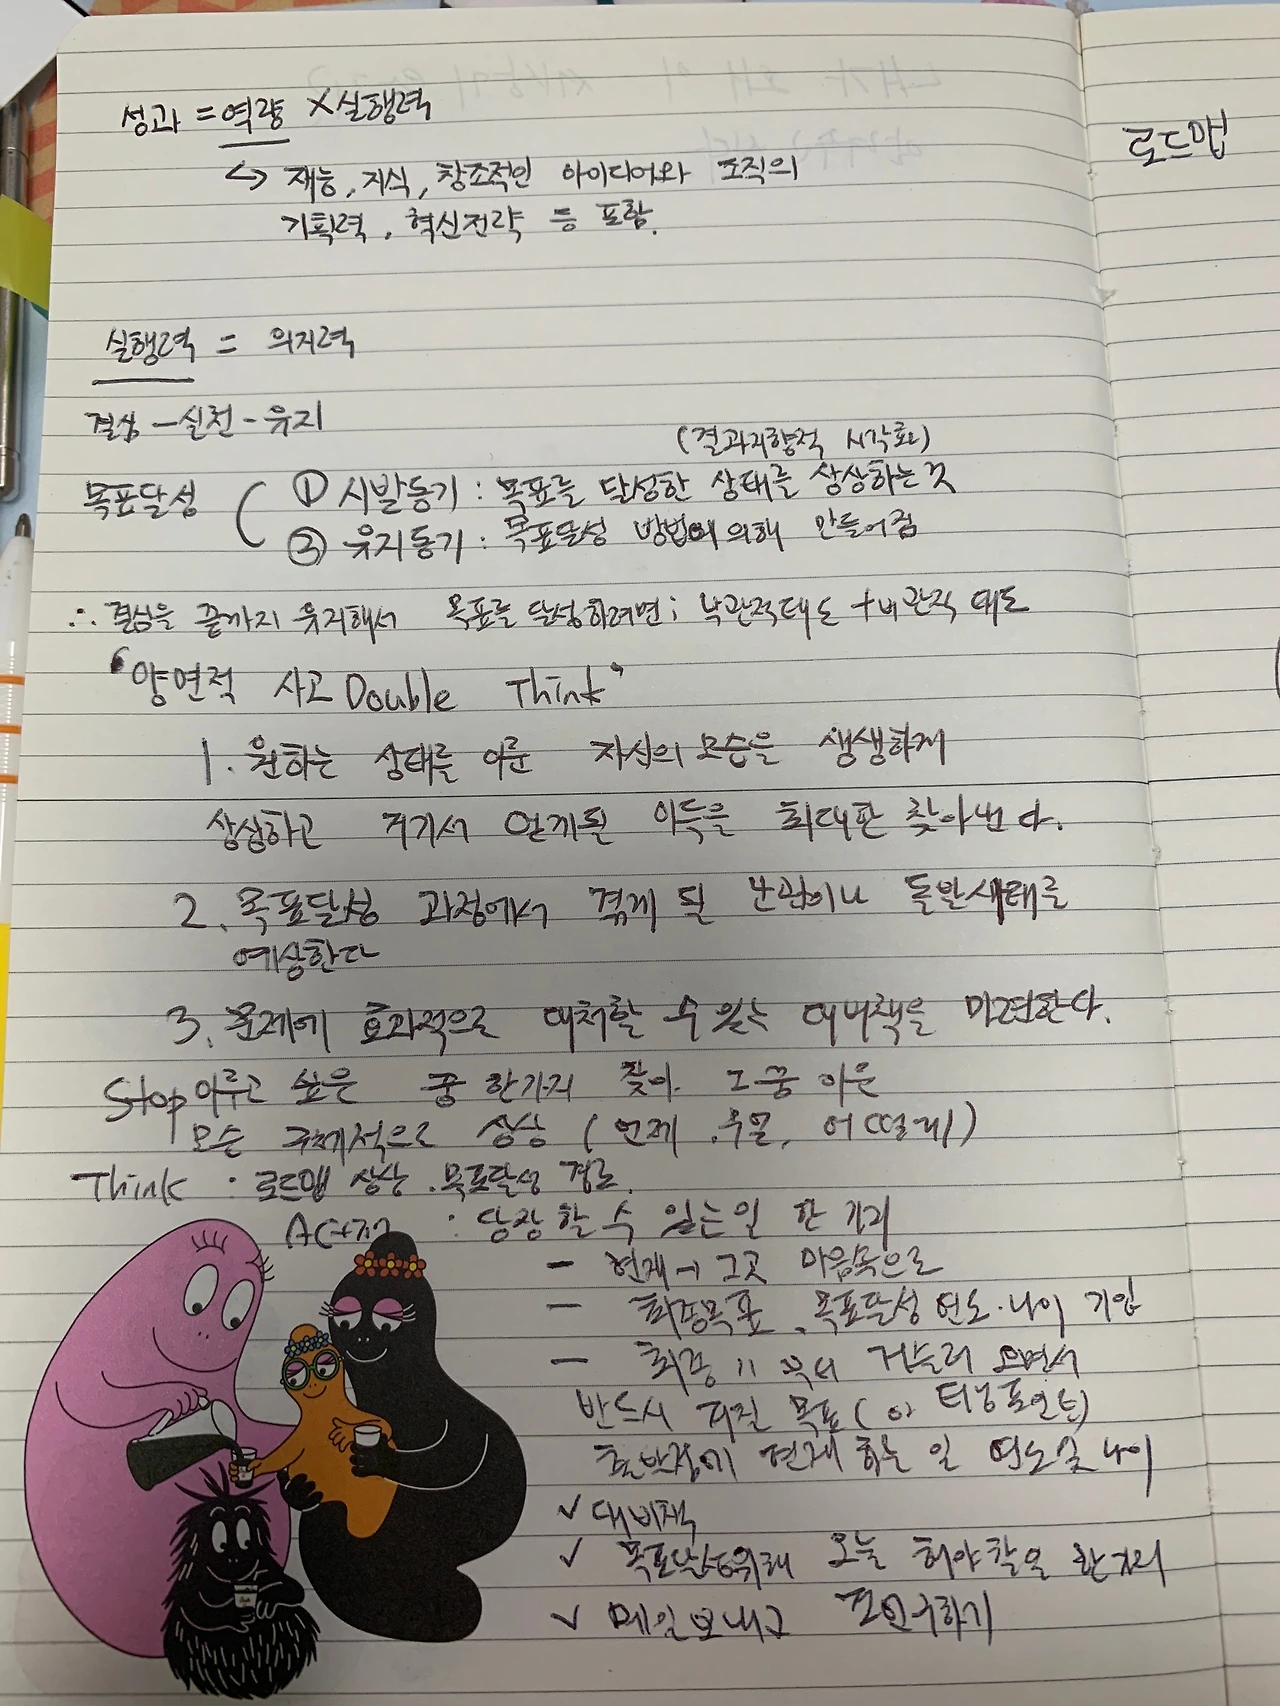 성과 = 역량 × 실행력
↳ 재능, 지식, 창조적인 아이디어와 조직의
기획력, 혁신전략 등 포함.
로드맵
실행력 = 의지력
결심 - 실천 - 유지
(결과지향적 시각화)
목표달성 ① 시발동기 : 목표를 달성한 상태를 상상하는 것
② 유지동기 : 목표달성 방법에 의해 만들어짐
∴ 결심을 끝까지 유지해서 목표를 달성하려면; 낙관적태도 + 비관적 태도
"양면적 사고 Double Think"
1. 원하는 상태를 이룬 자신의 모습을 생생하게
상상하고 거기서 얻게될 이득을 최대한 찾아낸다.
2. 목표달성 과정에서 겪게 될 난관이나 돌발사태를
예상한다
3. 문제에 효과적으로 대처할 수 있는 대비책을 마련한다.
Stop 이루고 싶은 꿈 한가지 찾아 그 꿈 이룬
모습 구체적으로 상상 (언제, 무얼, 어떻게)
Think : 로드맵 상상. 목표달성 경로.
Action : 당장 할 수 있는 일 한 가지
- 현재 → 그곳 마음속으로
- 최종목표, 목표달성 연도·나이 기입
- 최종 〃 부터 거슬러 오면서
반드시 거칠 목표( 터닝포인트)
출발점에 현재 하는 일 연도 및 나이
✓ 대비책
✓ 목표달성위해 오늘 해야 할일 한가지
✓ 메일보내고